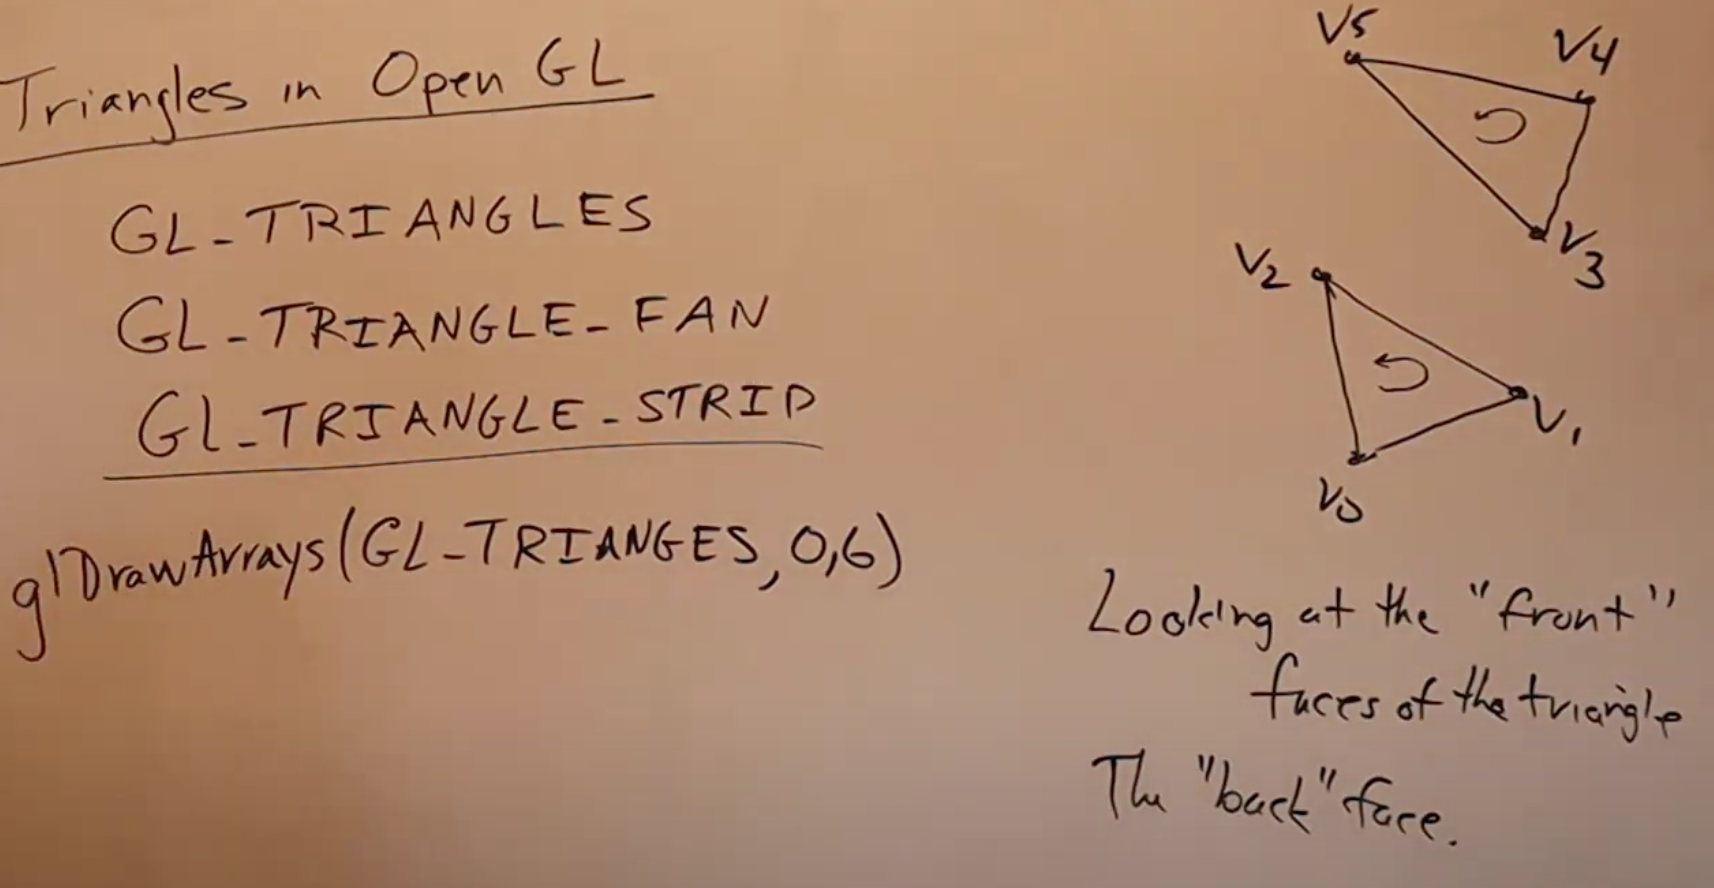 Triangles in Open GL
GL_TRIANGLES
GL_TRIANGLE_FAN
GL_TRIANGLE_STRIP
glDrawArrays(GL_TRIANGES,0,6)
V5
V4
V3
V2
V1
V0
Looking at the "front"
faces of the triangle
The "back" face.